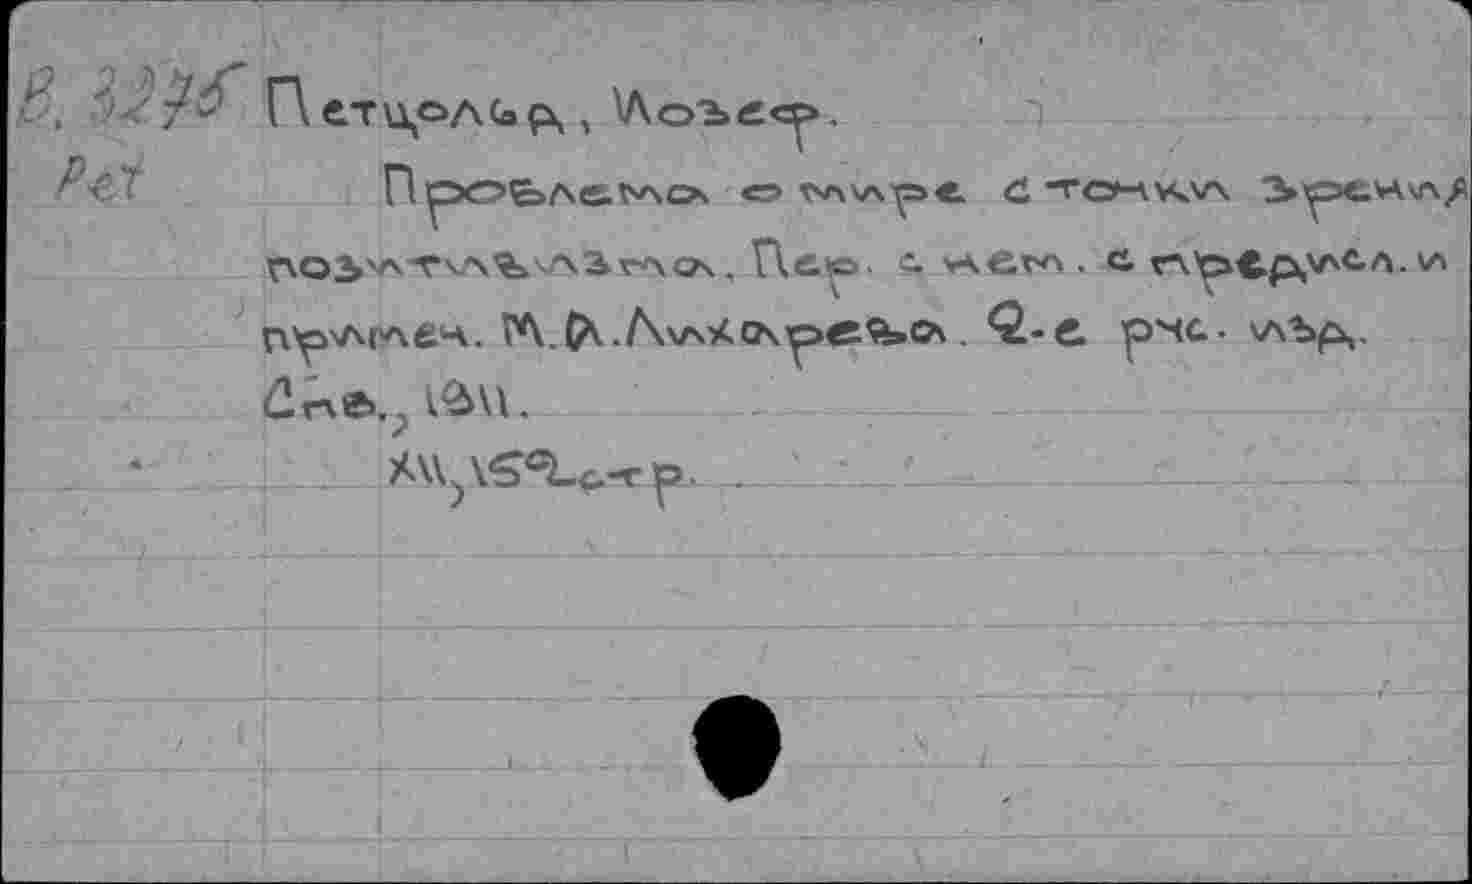 В. 3275 Петцольд, Иозеф.
Рет Проблема о мире с точки зрения
позитивизма. Пер. с нем. с предисл. и
примеч. М.А.Лихарева. 2-е рус. изд.
Спб., 1911.
XII, 152 стр.